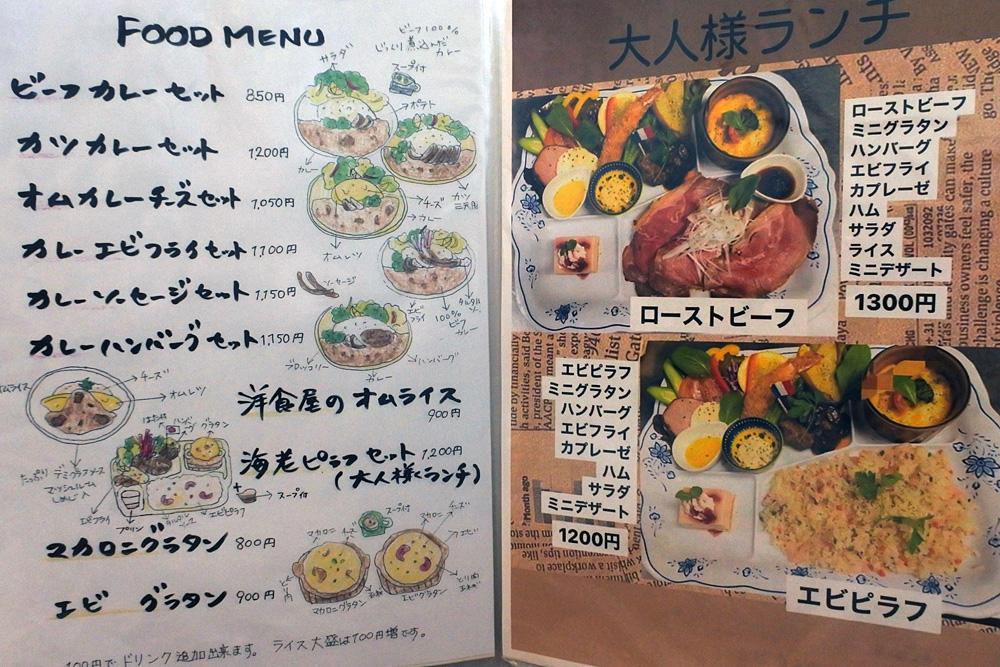 FOOD MENU
ビーフ100%
じっくり煮込んだ
カレー
サラダ
スープ付
ビーフカレーセット 850円
ポテト
カツカレーセット 1200円
カレー
カツ
オムカレーチーズセット 1,050円
チーズ
カレー
オムレツ
カレーエビフライセット 1,100円
ソーセージ
カレーソーセージセット 1,150円
エビフライ
100%
ビーフ
カレー
タルタル
カレーハンバーグセット 1,150円
ブロッコリー
ハンバーグ
カレー
オムライス
チーズ
オムレツ
洋食屋のオムライス
900円
ハンバーグ
グラタン
たっぷりデミグラスソース
マッシュルーム
しめじ入
海老ピラフセット 1,200円
(大人様ランチ)
スープ付
エビフライ
プリン
エビピラフ
マカロニグラタン 800円
マカロニ
チーズ
スープ付
マカロニ
チーズ
エビ
マカロニグラタン
エビグラタン
エビ グラタン 900円
100円でドリンク追加出来ます。 ライス大盛は100円増です。
大人様ランチ
ローストビーフ
ミニグラタン
ハンバーグ
エビフライ
カプレーゼ
ハム
サラダ
ライス
ミニデザート
1300円
ローストビーフ
エビピラフ
ミニグラタン
ハンバーグ
エビフライ
カプレーゼ
ハム
サラダ
ミニデザート
1200円
エビピラフ